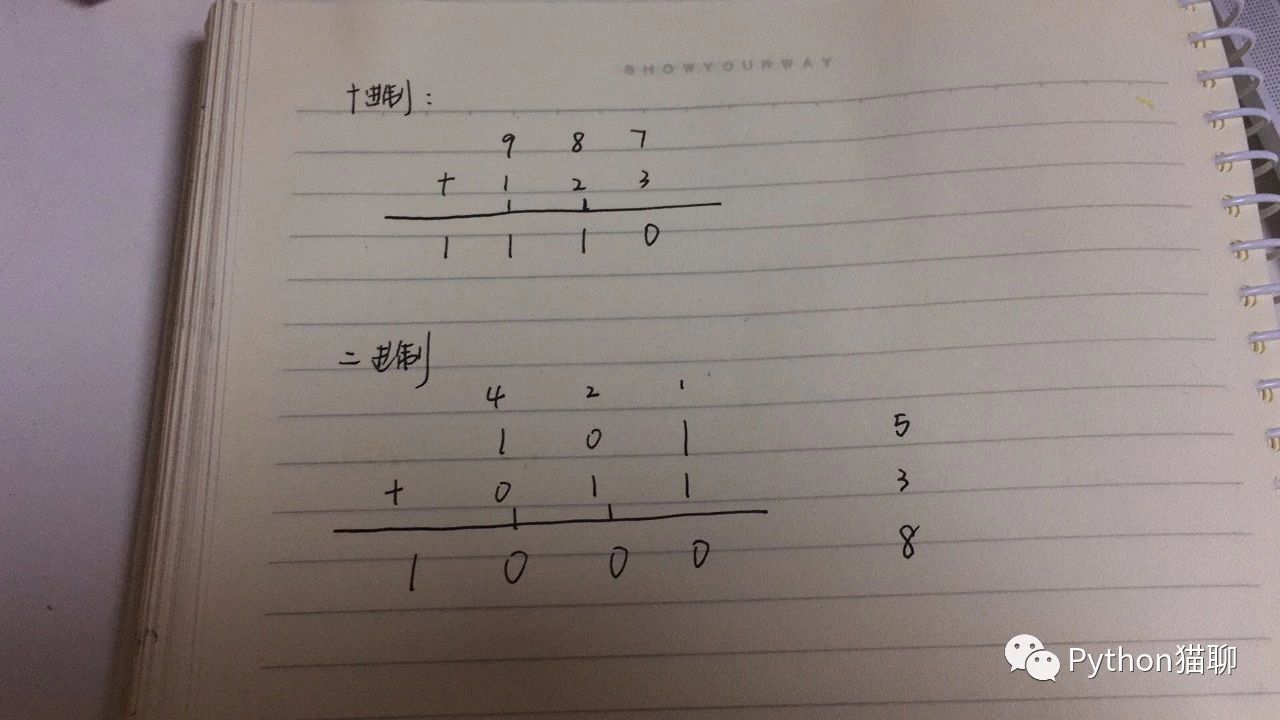 SHOWYOURWAY
十进制：
9 8 7
+ 1 2 3
1 1
1 1 1 0
二进制
4 2 1
1 0 1 5
+ 0 1 1 3
1 1
1 0 0 0 8
Python猫聊